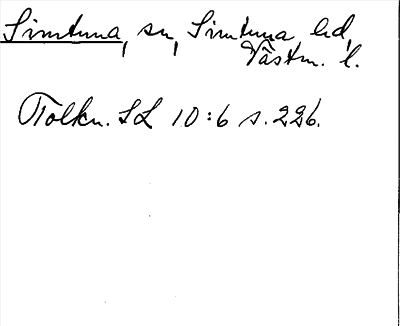 Simtuna, sn, Simtuna hd,
Västm. l.
Tolkn. SL 10:6 s. 226.